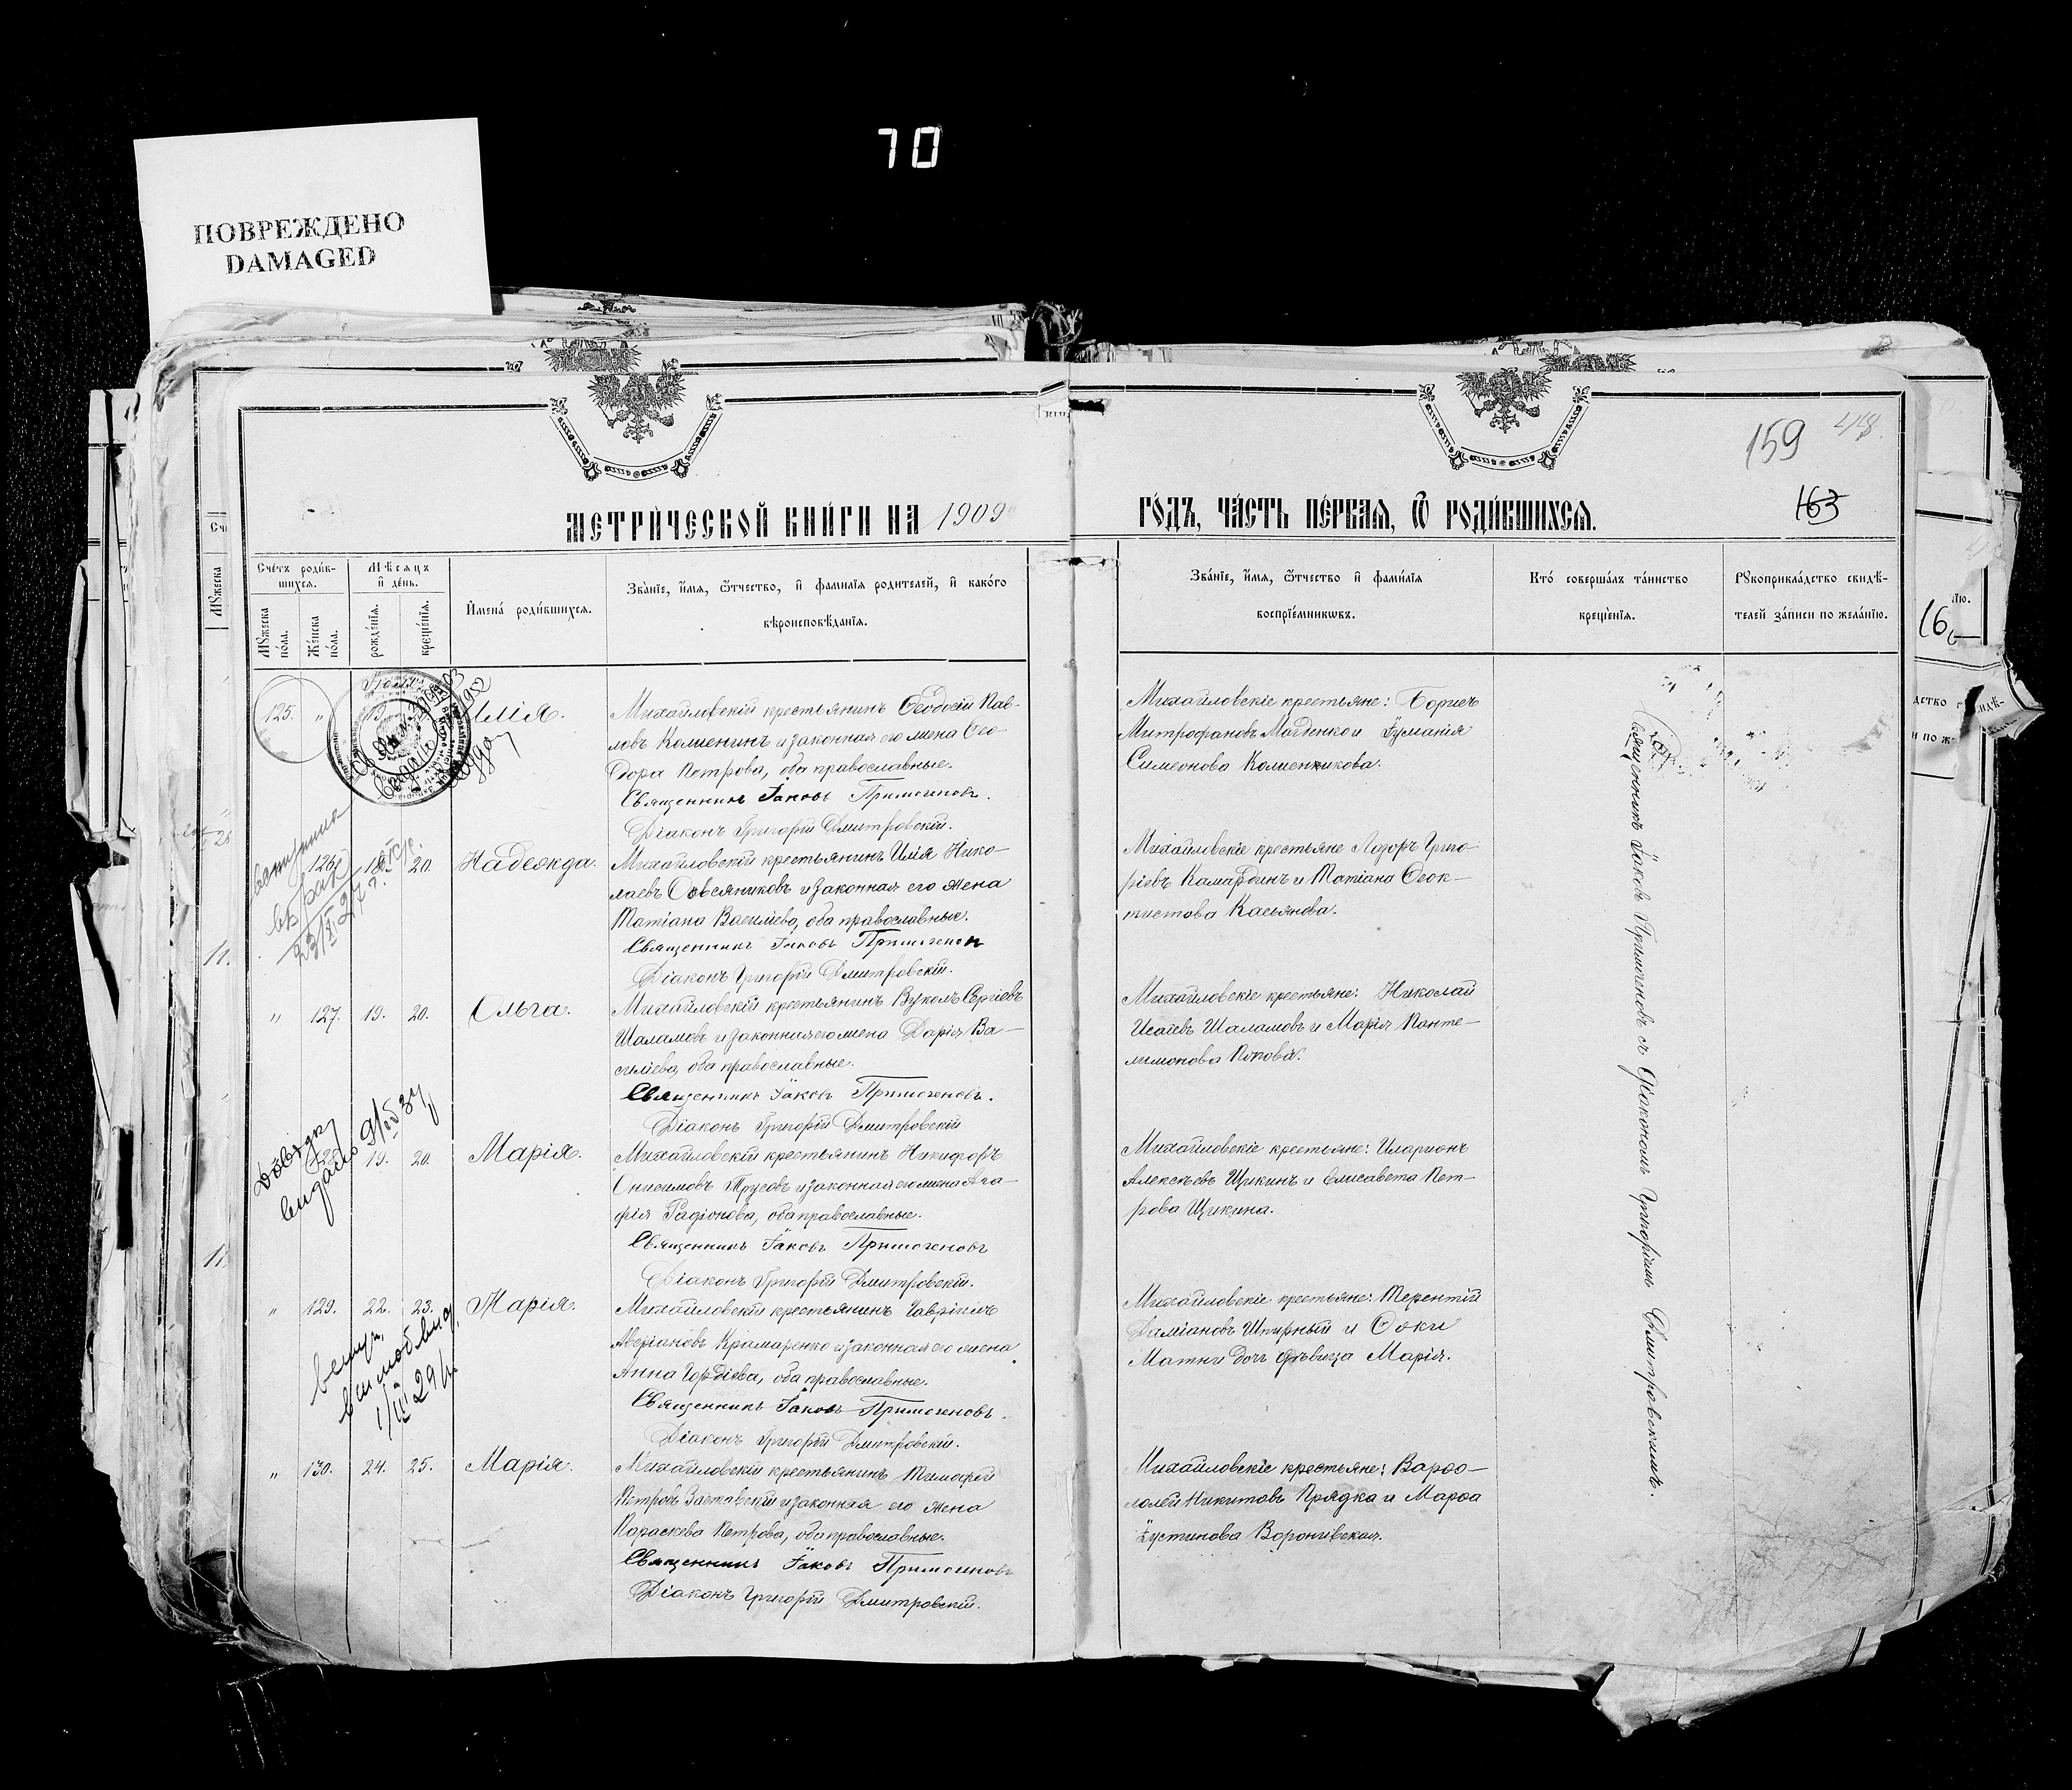 70
ПОВРЕЖДЕНО
DAMAGED
159
163
МЕТРИЧЕСКОЙ КНИГИ НА 1909
ГОДЪ, ЧАСТЬ ПЕРВАЯ, Ѿ РОДИВШИХСЯ.
Счетъ родив-
шихся.
Мѣсяцъ
и день.
Мужеска
пола.
Женска
пола.
рожденїя.
крещенїя.
Имена родившихся.
Званїе, имя, ѿтчество, и фамилїя родителей, и какого
вѣроисповѣданїя.
Званїе, имя, ѿтчество и фамилїя
воспрїемникωвъ.
Кто совершалъ таинство
крещенїя.
Рукоприкладство свидѣ-
телей записи по желанїю.
125. " 19
Илія.
Михайловскій крестьянинъ Ѳеодосій Пав-
ловъ Калиенинъ и законная его жена Ѳео-
дора Петрова, оба православные.
Священникъ Іаковъ Примогеновъ.
Діаконъ Григорій Дмитровскій.
Михайловскіе крестьяне: Борисъ
Митрофановъ и Іуманія
Симеонова
126. 18. 20. Надежда.
Михайловскій крестьянинъ Илія Нико-
лаевъ Овсяниковъ и законная его жена
Татіана Василіева, оба православные.
Священникъ Іаковъ Примогенов
Діаконъ Григорій Дмитровскій.
Михайловскіе крестьяне Лазоръ Григо-
ріевъ Камардинъ и Татіана Ѳеок-
тистова Касьянова.
" 127. 19. 20. Ольга.
Михайловскій крестьянинъ Вуколъ Сергіевъ
Шаламовъ и законная его жена Дарія Ва-
силіева, оба православные.
Священникъ Іаковъ Примогеновъ.
Діаконъ Григорій Дмитровскій
Михайловскіе крестьяне: Николай
Исаіевъ Шаламовъ и Марія Панте-
лимонова Попова.
Довідку
видано
19. 20. Марія.
Михайловскій крестьянинъ Никифоръ
Онисимовъ Трусовъ и законная его жена Ага-
фія Радіонова, оба православные.
Священникъ Іаковъ Примогеновъ
Діаконъ Григорій Дмитровскій.
Михайловскіе крестьяне: Иларионъ
Алексѣевъ Щикинъ и Елисавета Пет-
рова Щикина.
" 129. 22. 23. Марія.
Михайловскій крестьянинъ Гавріилъ
Аверіановъ Крамаренко и законная его жена
Анна Гордіева, оба православные.
Священникъ Іаковъ Примогеновъ.
Діаконъ Григорій Дмитровскій.
Михайловскіе крестьяне: Терентій
Даміановъ и
дочь дѣвица Марія.
" 130. 24. 25. Марія.
Михайловскій крестьянинъ Тимофей
Петровъ Заставскій и законная его жена
Параскева Петрова, оба православные.
Священникъ Іаковъ Примогеновъ
Діаконъ Григорій Дмитровскій.
Михайловскіе крестьяне: Варѳо-
ломей Никитовъ Прядка и Марѳа
Іустинова
Священникъ Іаковъ Примогеновъ съ діакономъ Григоріемъ Дмитровскимъ.